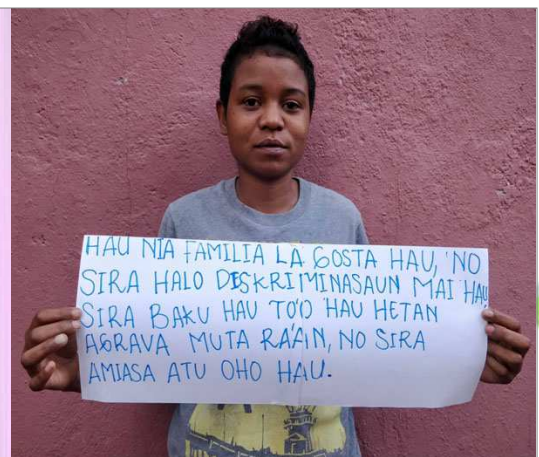 HAU NIA FAMILIA LA GOSTA HAU, NO
SIRA HALO DESKRIMINASAUN MAI HAU
SIRA BAKU HAU TO'O HAU HETAN
AGRAVA MUTA RA'AN, NO SIRA
AMIASA ATU OHO HAU.